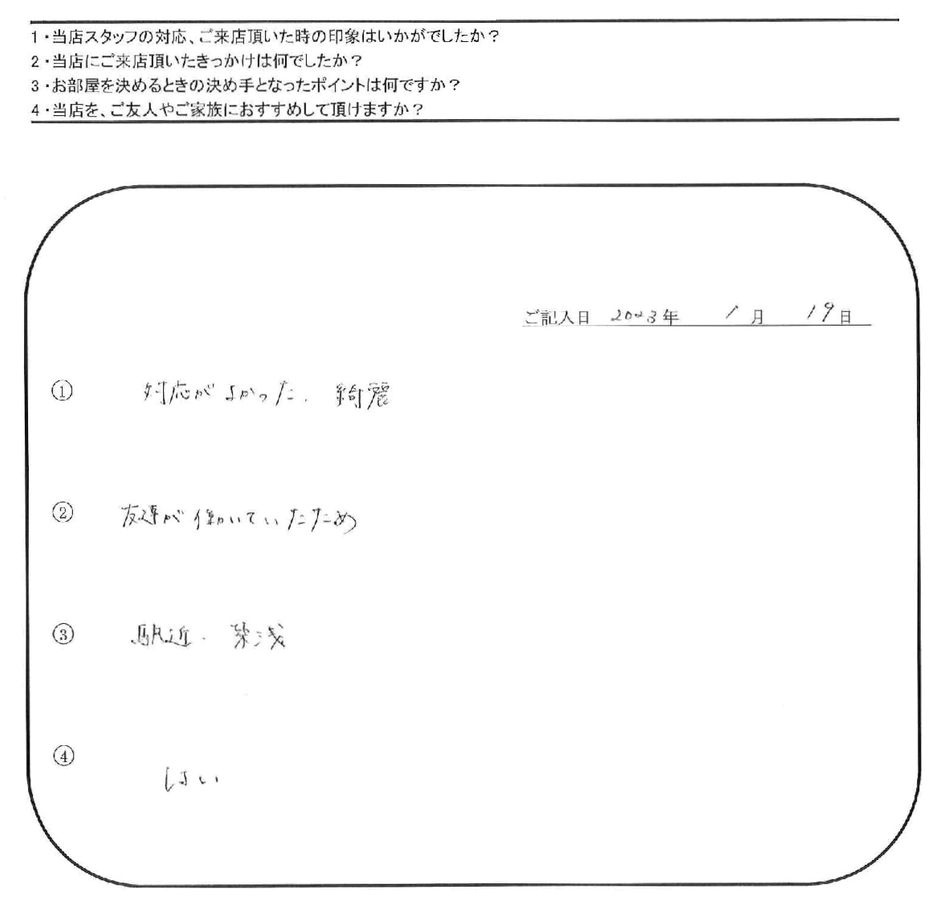 1・当店スタッフの対応、ご来店頂いた時の印象はいかがでしたか？
2・当店にご来店頂いたきっかけは何でしたか？
3・お部屋を決めるときの決め手となったポイントは何ですか？
4・当店を、ご友人やご家族におすすめして頂けますか？
ご記入日 2023年 1月 19日
① 対応がよかった. 綺麗
② 友達が働いていたため
③ 駅近. 築浅
④ はい